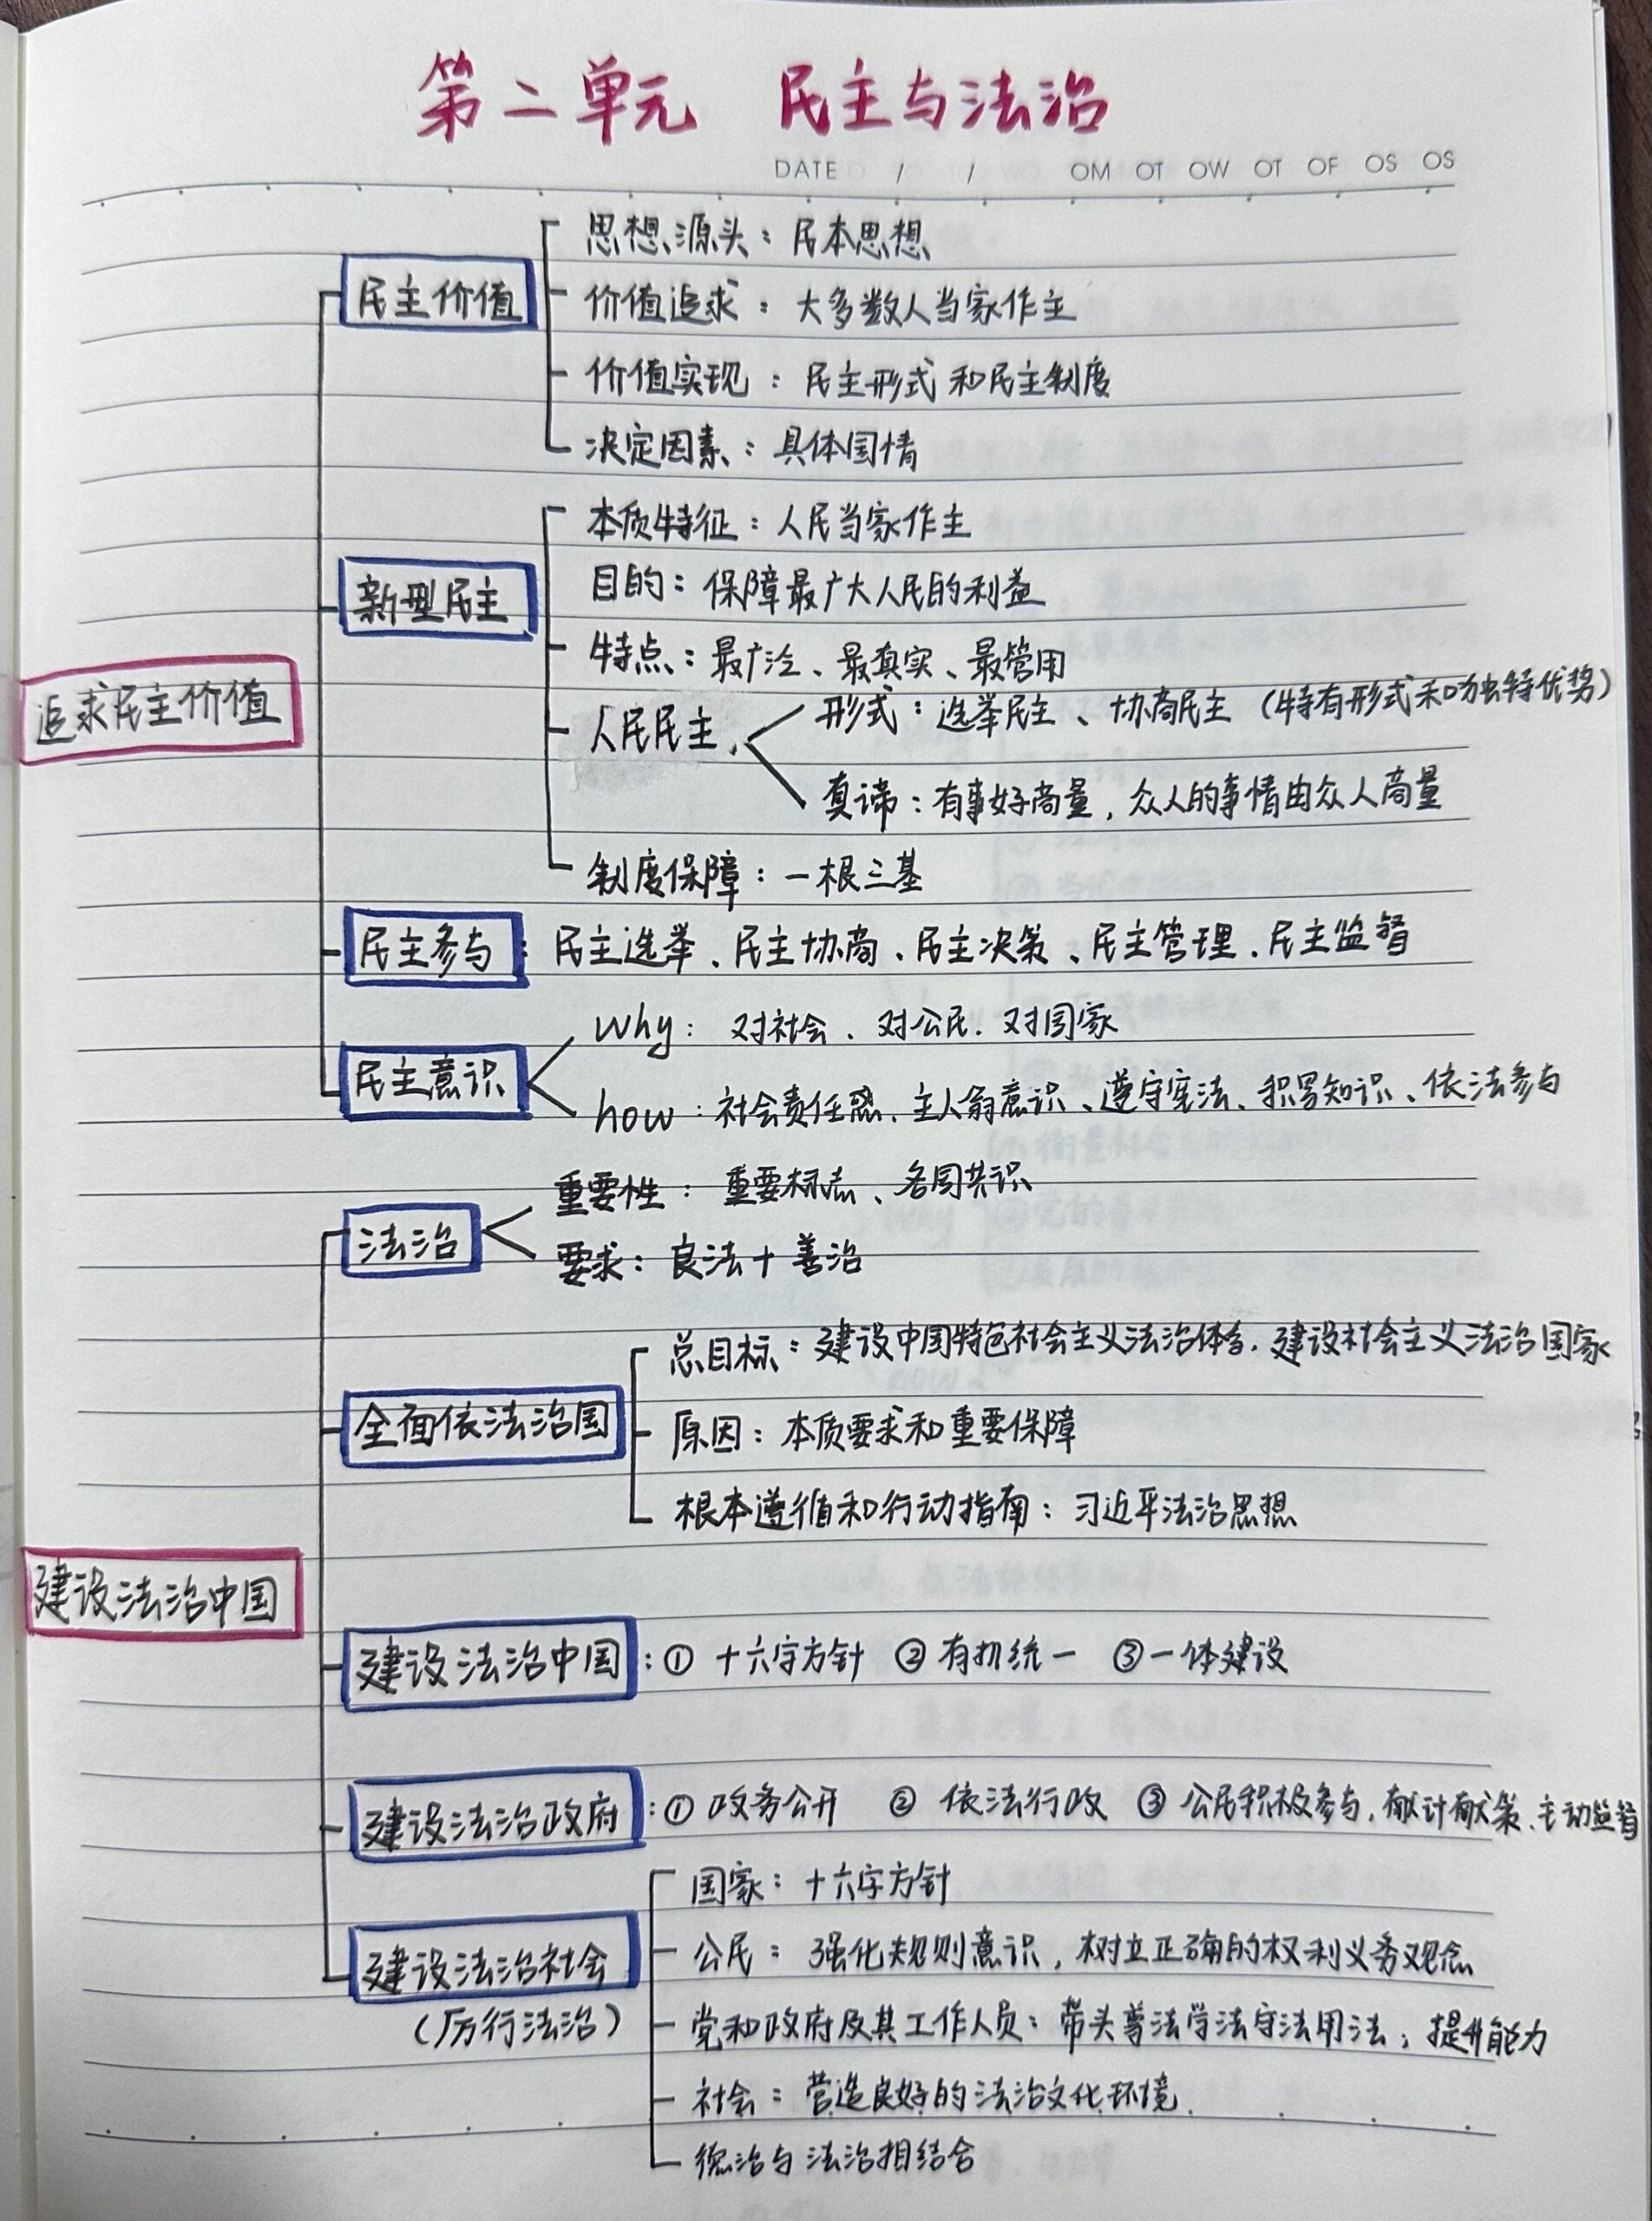 第二单元 民主与法治
DATE / / OM OT OW OT OF OS OS
追求民主价值
民主价值
思想源头：民本思想
价值追求：大多数人当家作主
价值实现：民主形式和民主制度
决定因素：具体国情
新型民主
本质特征：人民当家作主
目的：保障最广大人民的利益
特点：最广泛、最真实、最管用
人民民主
形式：选举民主、协商民主（特有形式和独特优势）
真谛：有事好商量，众人的事情由众人商量
制度保障：一根三基
民主参与：民主选举、民主协商、民主决策、民主管理、民主监督
民主意识
why：对社会、对公民、对国家
how：社会责任感、主人翁意识、遵守宪法、积累知识、依法参与
建设法治中国
法治
重要性：重要标志、各国共识
要求：良法+善治
全面依法治国
总目标：建设中国特色社会主义法治体系，建设社会主义法治国家
原因：本质要求和重要保障
根本遵循和行动指南：习近平法治思想
建设法治中国：① 十六字方针 ② 有机统一 ③ 一体建设
建设法治政府：① 政务公开 ② 依法行政 ③ 公民积极参与，献计献策、主动监督
建设法治社会
（厉行法治）
国家：十六字方针
公民：强化规则意识，树立正确的权利义务观念
党和政府及其工作人员：带头尊法学法守法用法；提升能力
社会：营造良好的法治文化环境
德治与法治相结合